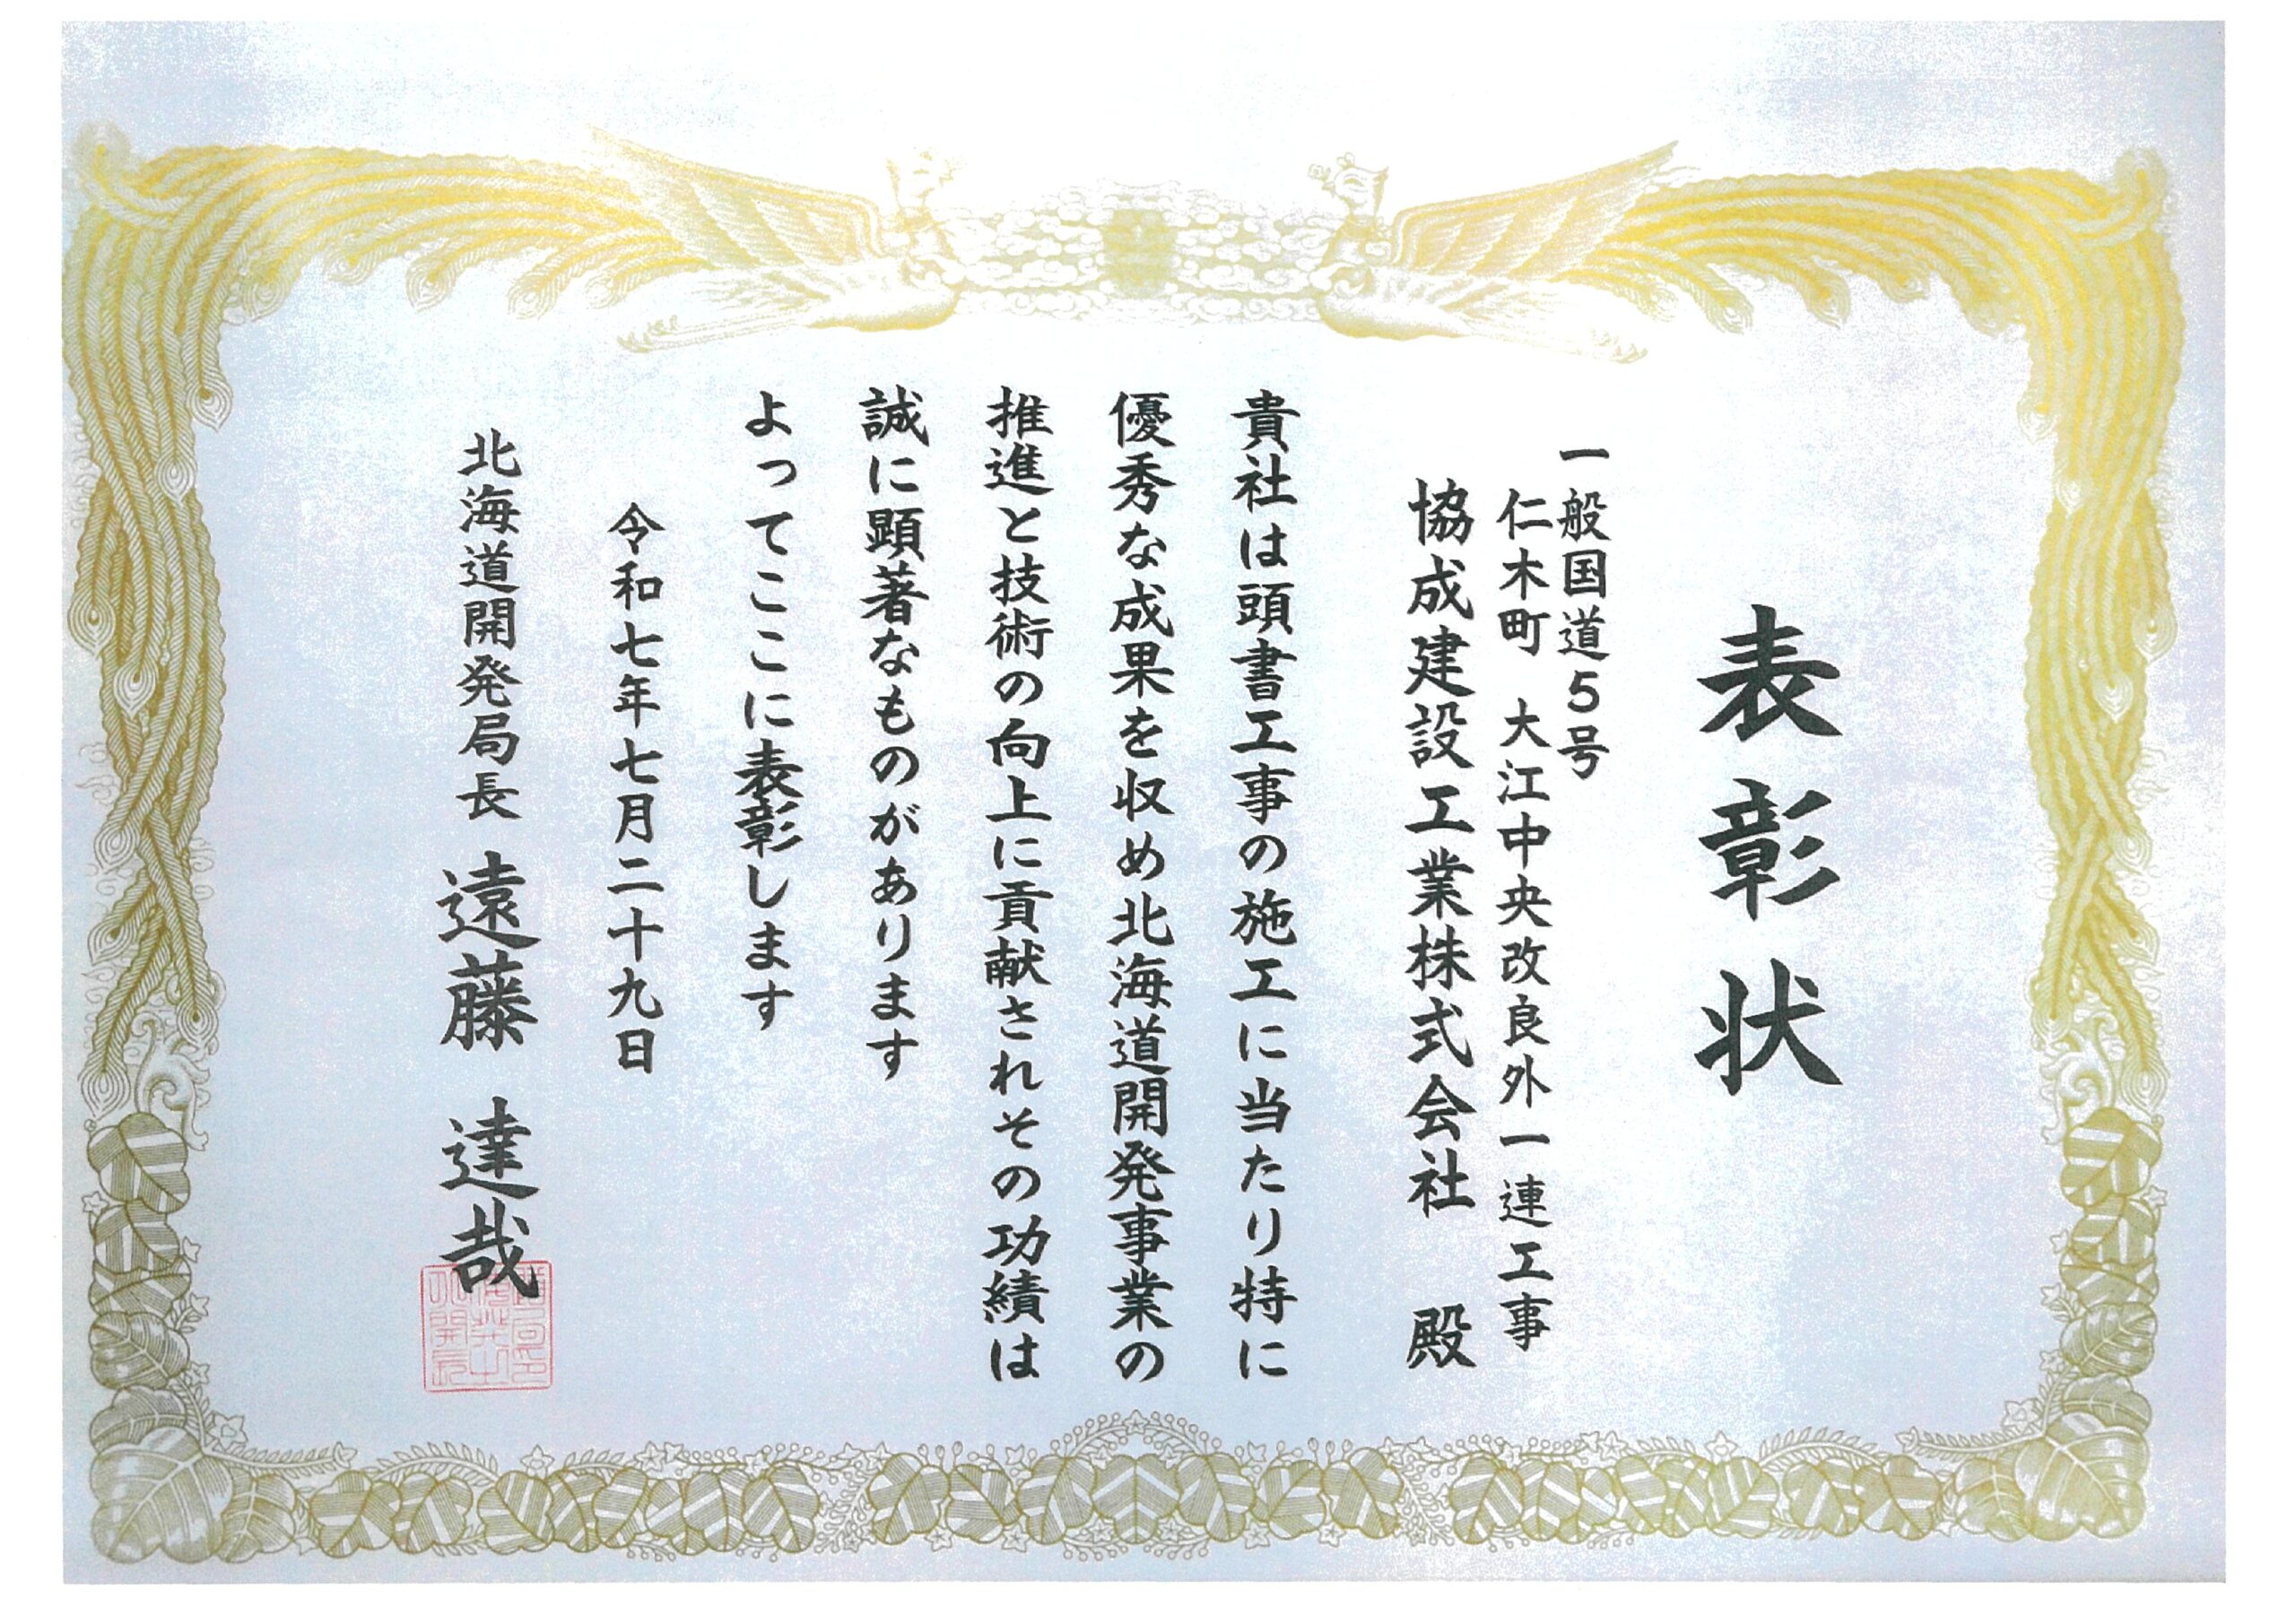 表彰状
一般国道5号
仁木町 大江中央改良外一連工事
協成建設工業株式会社 殿
貴社は頭書工事の施工に当たり特に
優秀な成果を収め北海道開発事業の
推進と技術の向上に貢献されその功績は
誠に顕著なものがあります
よってここに表彰します
令和七年七月二十九日
北海道開発局長 遠藤 達哉